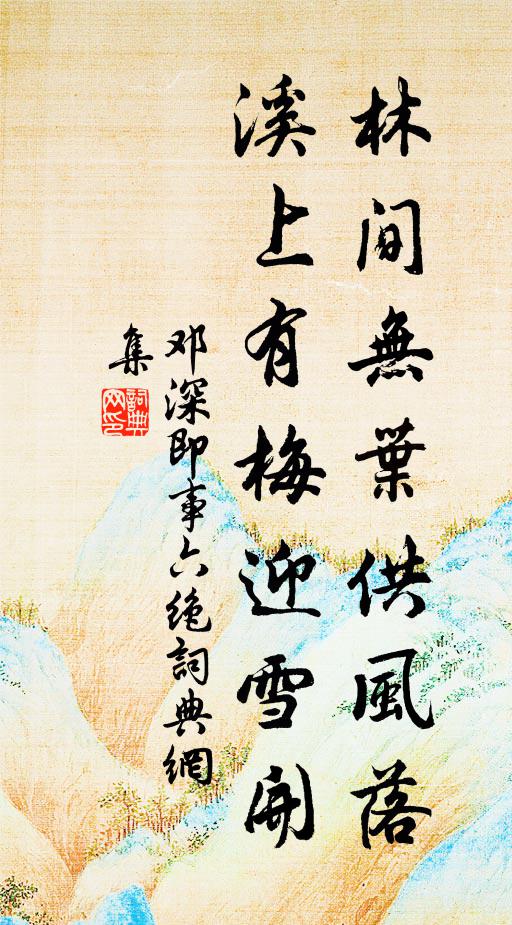 林間無葉供風落
溪上有梅迎雪開
邓深即事六绝詞典網
集
詞典網印